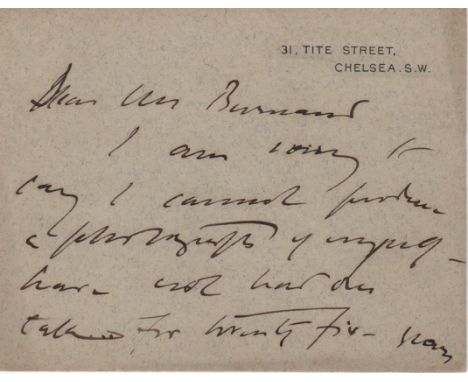 31, TITE STREET,
CHELSEA. S.W.
Dear Mr Burnand
I am sorry to
say I cannot produce
a photograph of myself –
have not had one
taken for twenty five years